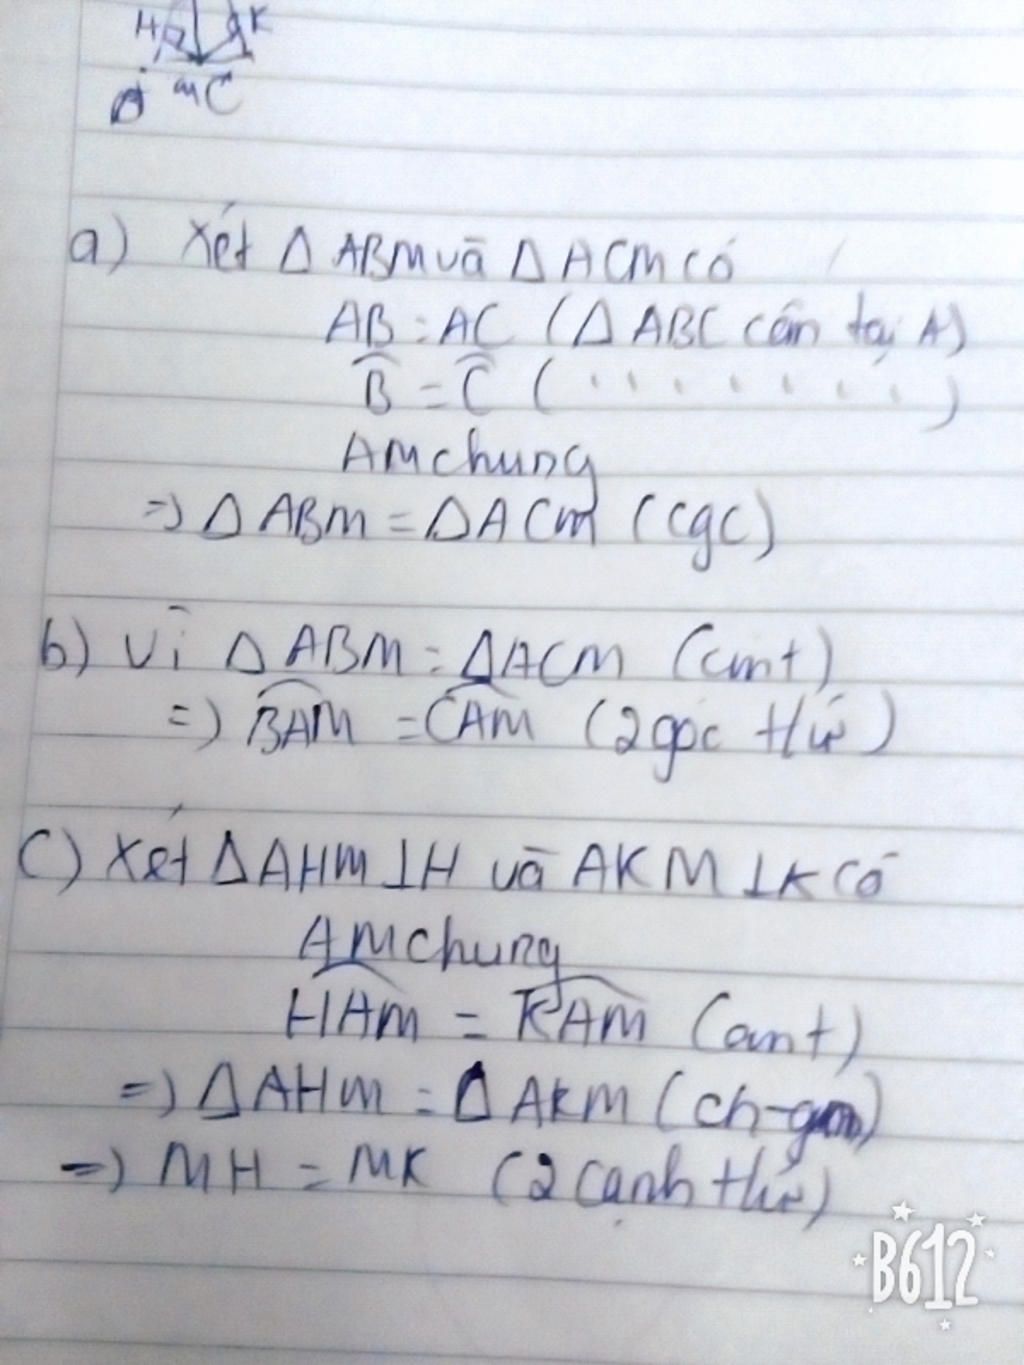 H K
B M C
a) Xét Δ ABM và Δ ACM có
AB = AC (Δ ABC cân tại A)
B̂ = Ĉ (. . . . . . . .)
AM chung
=> Δ ABM = Δ ACM (cgc)
b) Vì Δ ABM = Δ ACM (cmt)
=> BAM = CAM (2 góc tứ)
C) Xét Δ AHM ⊥ H và AKM ⊥ K có
AM chung
HAM = KAM (cmt)
=> Δ AHM = Δ AKM (ch-gn)
=> MH = MK (2 cạnh tứ)
B612